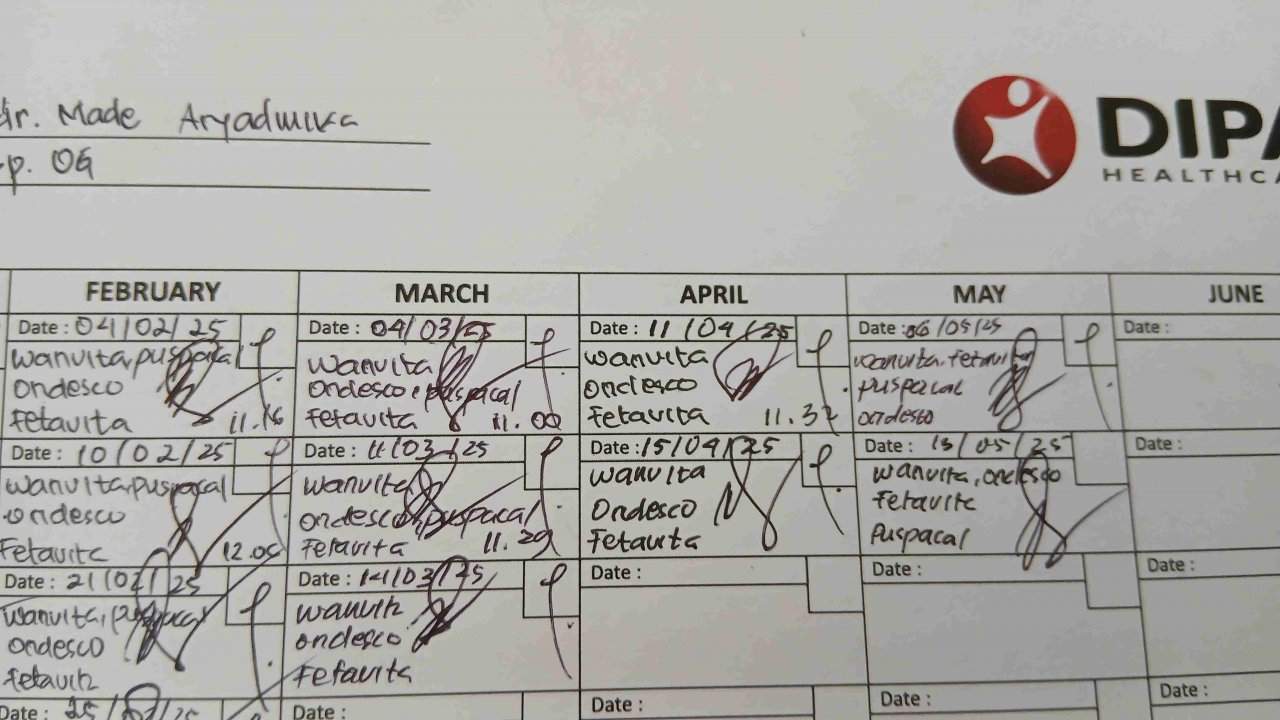 dr. Made Aryadwika
p. OG
DIPA
HEALTHCA
FEBRUARY MARCH APRIL MAY JUNE
Date : 04/02/25
wanvita, puspacal
ondesco
Fetavita 11.16
Date : 04/03/25
wanvita
ondesco, puspacal
Fetavita 11.00
Date : 11/04/25
wanvita
ondesco
Fetavita 11.32
Date : 06/05/25
wanvita, fetavita
puspacal
ondesco
Date :
Date : 10/02/25
wanvita, puspacal
ondesco
Fetavita 12.05
Date : 11/03/25
wanvita
ondesco, puspacal
Fetavita 11.29
Date : 15/04/25
wanvita
Ondesco
Fetavita
Date : 13/05/25
wanvita, ondesco
Fetavita
Puspacal
Date :
Date : 21/02/25
wanvita, puspacal
ondesco
Fetavita
Date : 14/03/25
wanvita
ondesco
Fetavita
Date :
Date :
Date :
Date : 25/ /25
Date :
Date :
Date :
Date :